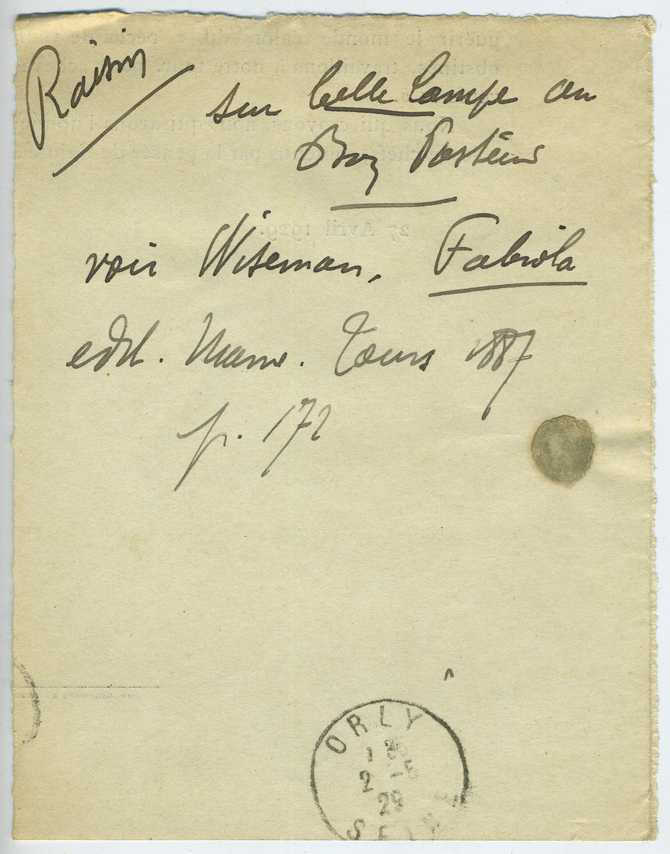 Raisin
sur belle lampe au
Bon Pasteur
voir Wiseman, Fabiola
edit. Mame. Tours 1887
p. 172
27 Avril 1929.
ORLY
2 -5
29
SEINE